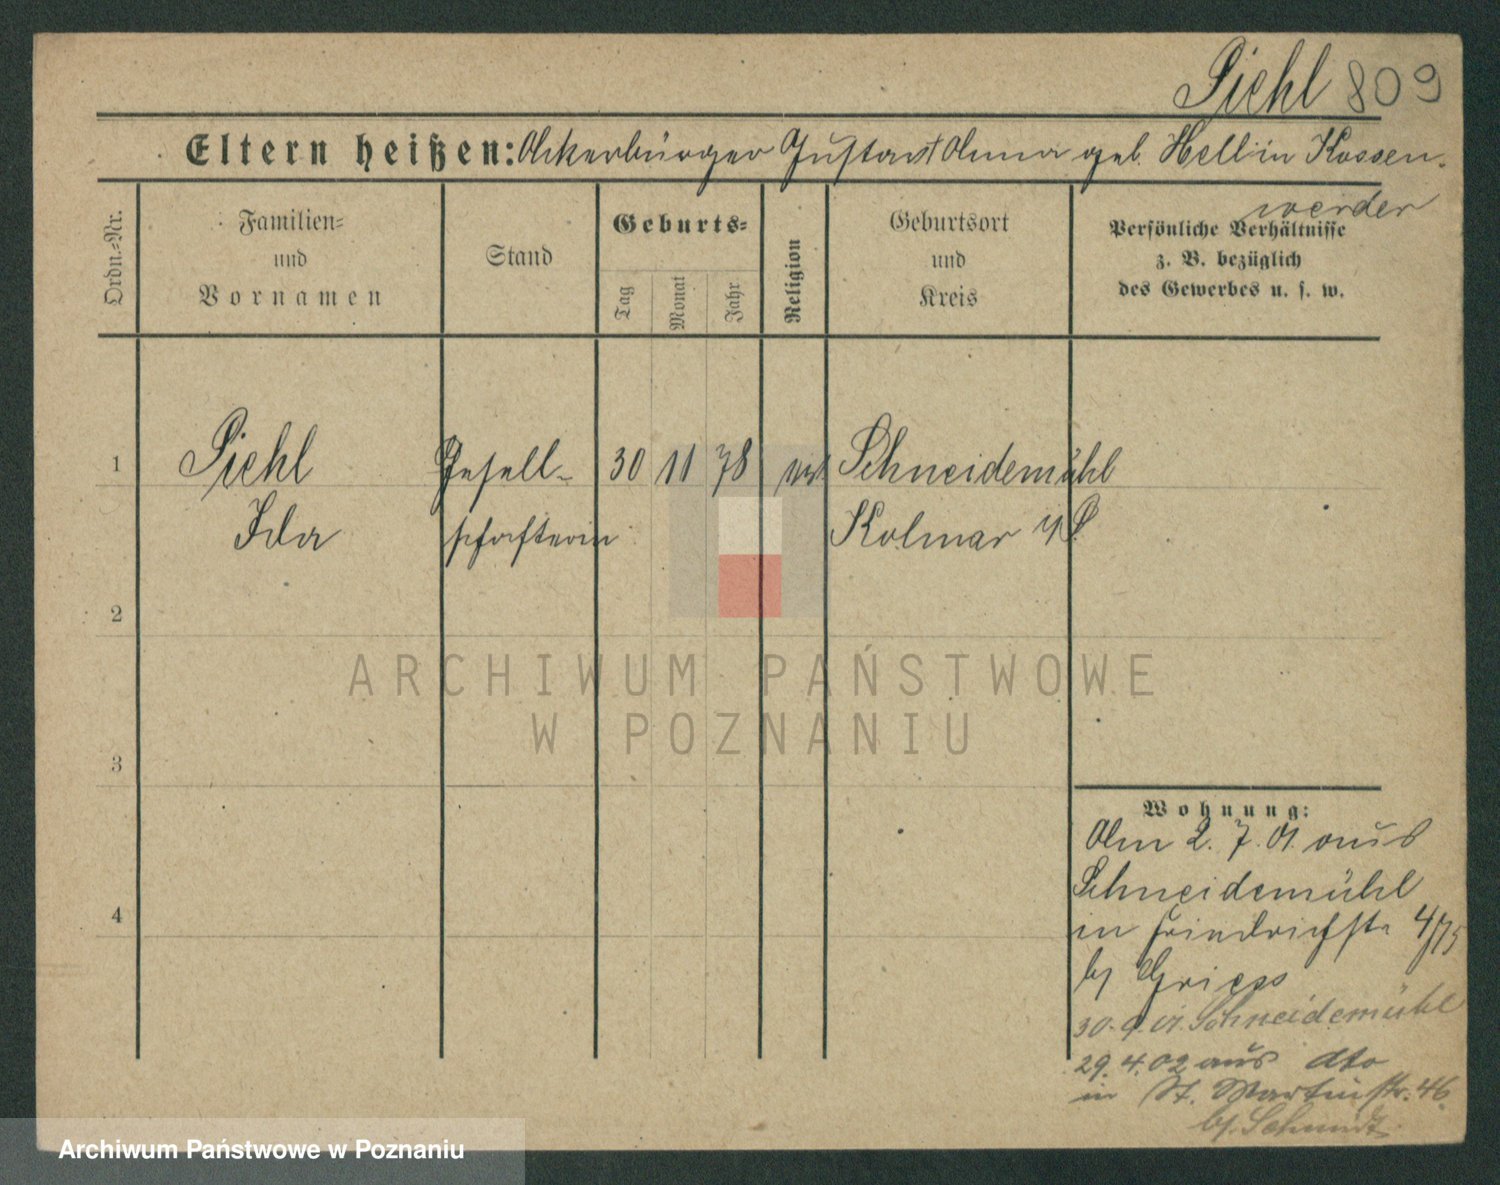 Piehl 809
Eltern heißen: Ackerbürger Gustav Anna geb. Hell in Kossen-
werder
Ordn.-Nr.
Familien-
und
Vornamen
Stand
Geburts-
Tag
Monat
Jahr
Religion
Geburtsort
und
Kreis
Persönliche Verhältnisse
z. B. bezüglich
des Gewerbes u. s. w.
1
Piehl Gesell- 30 11 78 Schneidemühl
Ida schafterin Kolmar i/P
2
3
4
ARCHIWUM PAŃSTWOWE
W POZNANIU
Wohnung:
Am 2. 7. 01. aus
Schneidemühl
in Friedrichstr 4/75
bj Griess
30. 9. 01. Schneidemühl
29. 4. 02 aus dto
in St. Martinstr. 46
bj. Schmidt
Archiwum Państwowe w Poznaniu